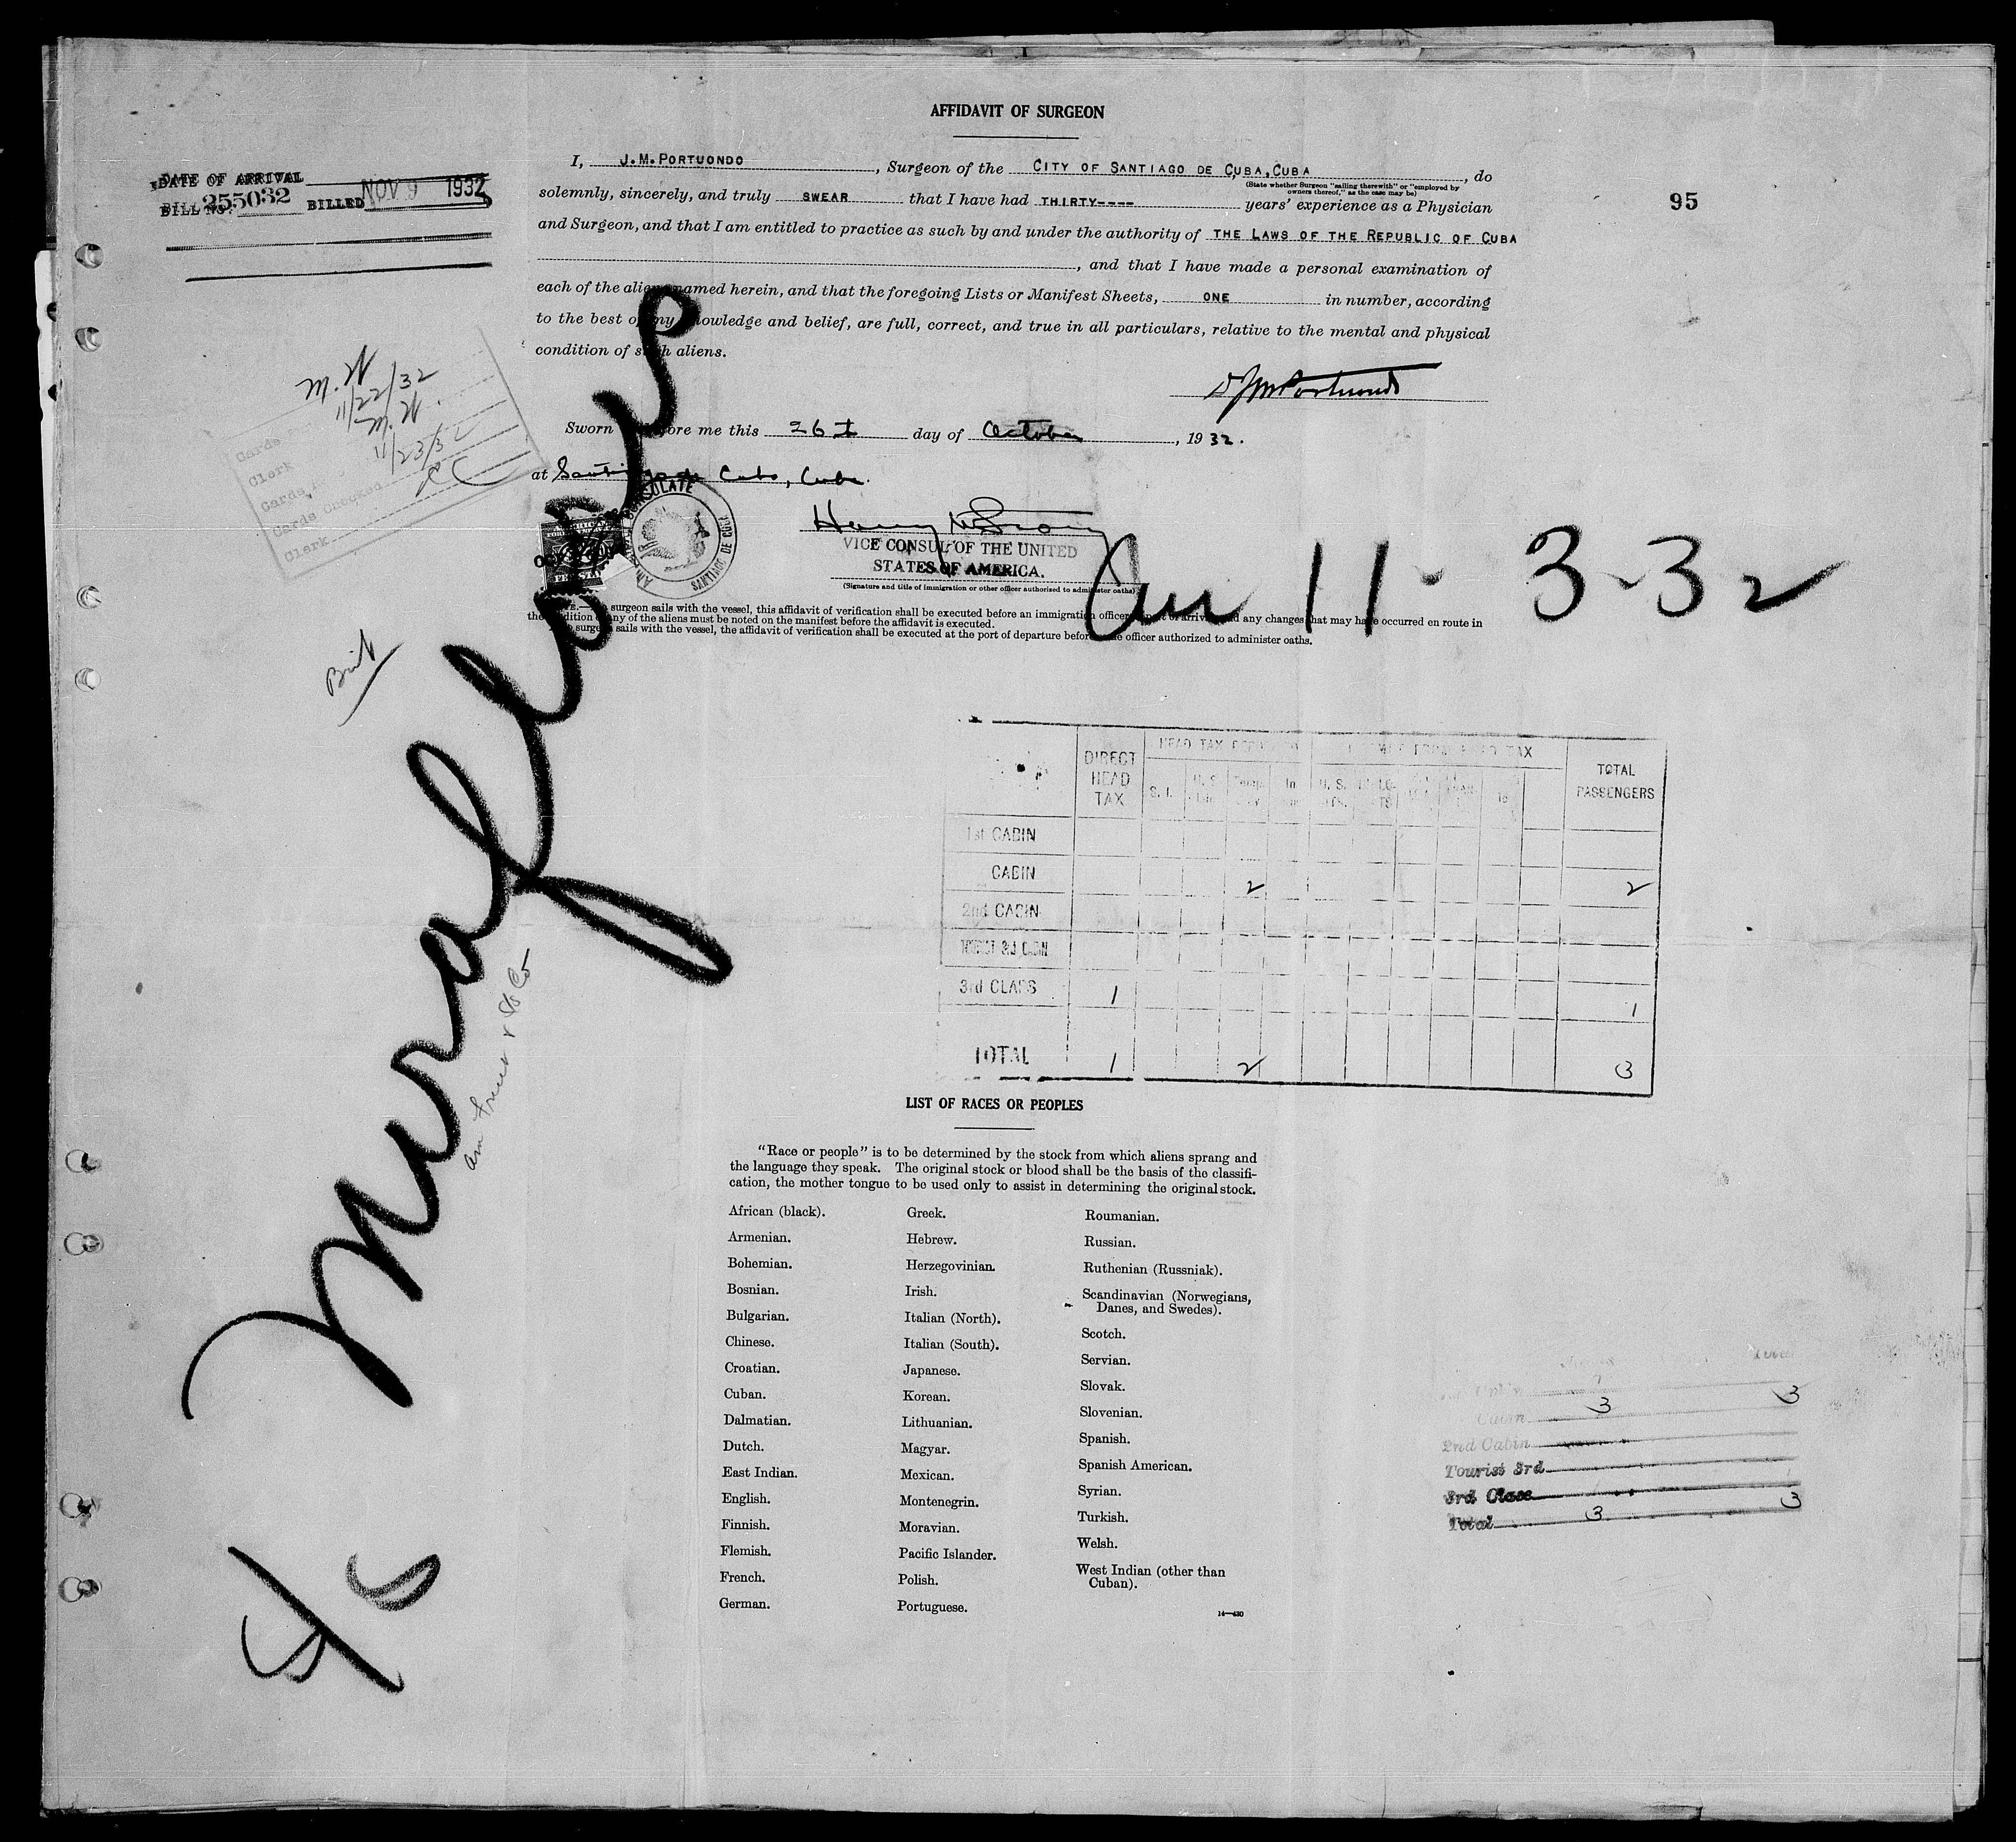 AFFIDAVIT OF SURGEON
DATE OF ARRIVAL
BILL No. 255032 BILLED NOV 9 1932
95
I, J.M.PORTUONDO, Surgeon of the CITY OF SANTIAGO DE CUBA,CUBA, do
(State whether Surgeon "sailing therewith" or "employed by
owners thereof," as the case may be)
solemnly, sincerely, and truly SWEAR that I have had THIRTY---- years' experience as a Physician
and Surgeon, and that I am entitled to practice as such by and under the authority of THE LAWS OF THE REPUBLIC OF CUBA
, and that I have made a personal examination of
each of the aliens named herein, and that the foregoing Lists or Manifest Sheets, ONE in number, according
to the best of my knowledge and belief, are full, correct, and true in all particulars, relative to the mental and physical
condition of such aliens.
Sworn before me this 26th day of October, 1932.
at Santiago de Cuba, Cuba.
M.N
11/22/32
M.N.
11/23/32
Cards
Clerk
Cards
Cards Checked
Clerk
CONSULATE
SANTIAGO DE CUBA
VICE CONSUL OF THE UNITED
STATES OF AMERICA.
(Signature and title of immigration or other officer authorized to administer oaths)
Arr 11-3-32
surgeon sails with the vessel, this affidavit of verification shall be executed before an immigration officer any changes that may have occurred en route in
the condition of any of the aliens must be noted on the manifest before the affidavit is executed.
surgeon sails with the vessel, the affidavit of verification shall be executed at the port of departure before officer authorized to administer oaths.
Brit
S/S Muraflores
DIRECT HEAD TAX
HEAD TAX
TAX
TOTAL PASSENGERS
S. I.
U. S.
1st CABIN
CABIN 2 2
2nd CABIN
3rd CLASS 1 1
TOTAL 1 2 3
LIST OF RACES OR PEOPLES
"Race or people" is to be determined by the stock from which aliens sprang and
the language they speak. The original stock or blood shall be the basis of the classifi-
cation, the mother tongue to be used only to assist in determining the original stock.
African (black).
Armenian.
Bohemian.
Bosnian.
Bulgarian.
Chinese.
Croatian.
Cuban.
Dalmatian.
Dutch.
East Indian.
English.
Finnish.
Flemish.
French.
German.
Greek.
Hebrew.
Herzegovinian.
Irish.
Italian (North).
Italian (South).
Japanese.
Korean.
Lithuanian.
Magyar.
Mexican.
Montenegrin.
Moravian.
Pacific Islander.
Polish.
Portuguese.
Roumanian.
Russian.
Ruthenian (Russniak).
Scandinavian (Norwegians,
Danes, and Swedes).
Scotch.
Servian.
Slovak.
Slovenian.
Spanish.
Spanish American.
Syrian.
Turkish.
Welsh.
West Indian (other than
Cuban).
14—430
Cabin 3 3
2nd Cabin
Tourist 3rd
3rd Class
Total 3 3